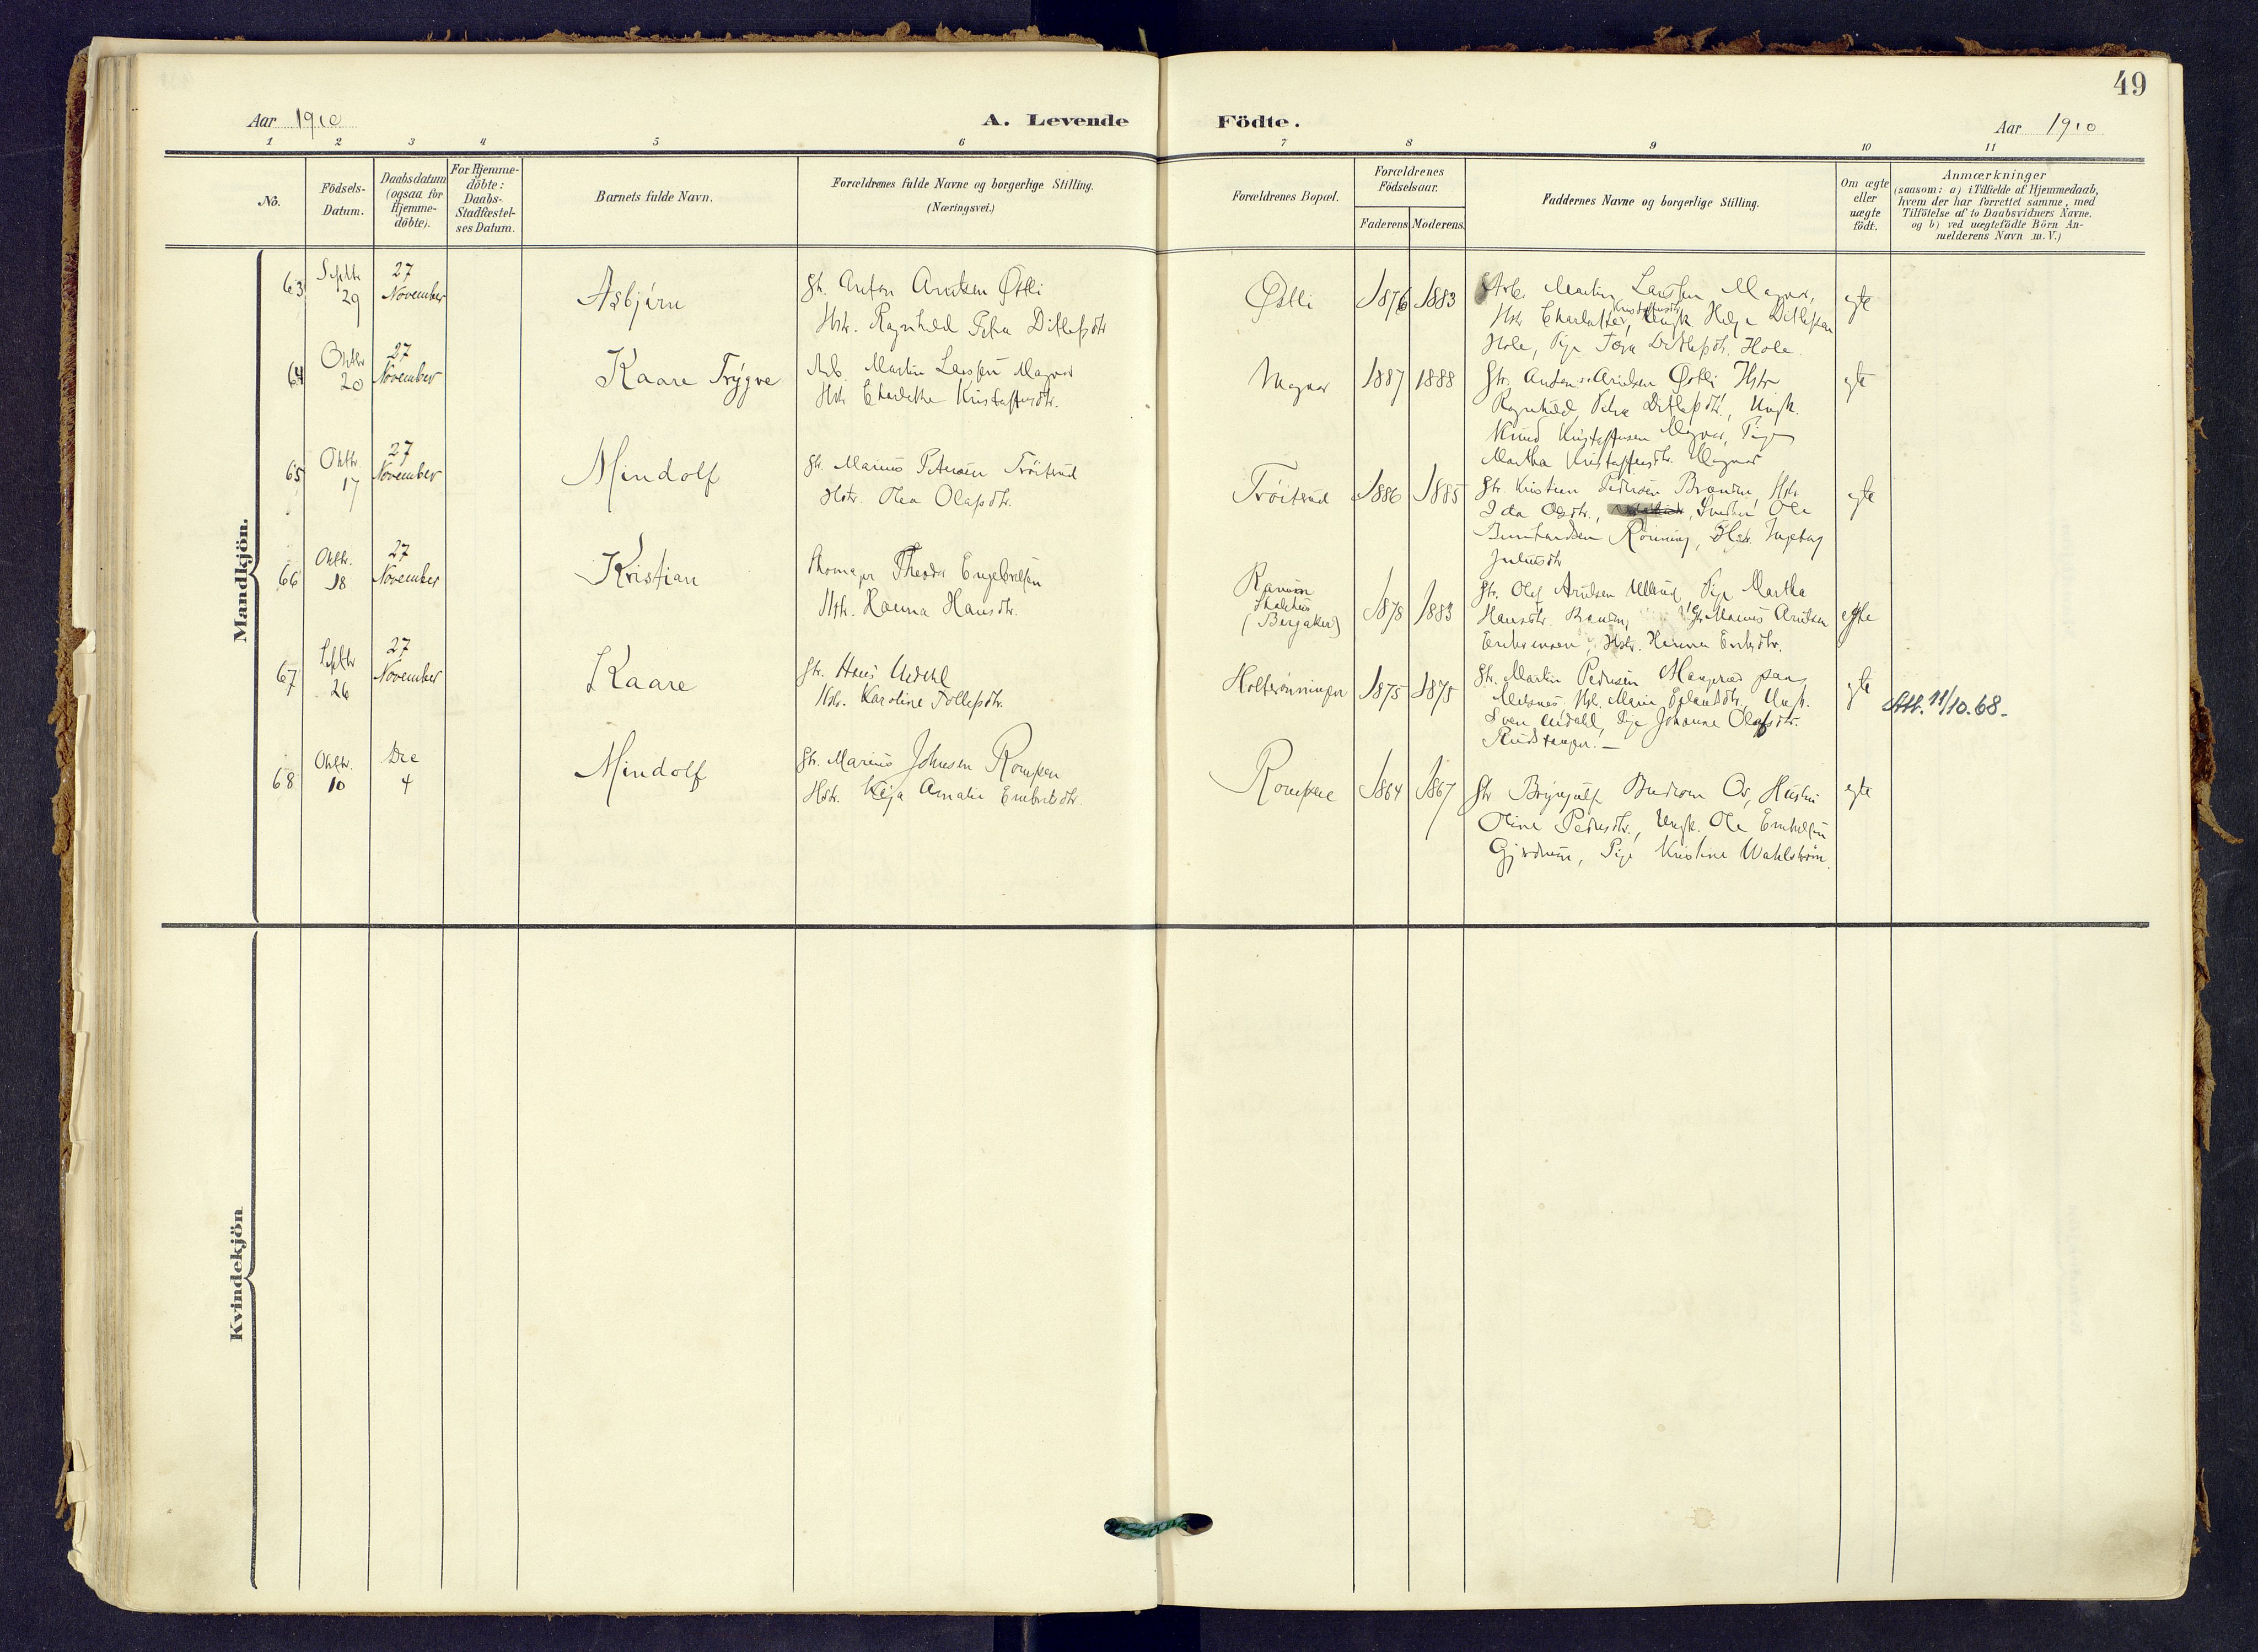 49
Aar 1910
A. Levende Födte.
Aar 1910
1 2 3 4 5 6 7 8 9 10 11
No.
Födsels-Datum.
Daabsdatum (ogsaa for Hjemme-döbte).
For Hjemme-döbte: Daabs-Stadfæstel-ses Datum.
Barnets fulde Navn.
Forældrenes fulde Navne og borgerlige Stilling.
(Næringsvei.)
Forældrenes Bopæl.
Forældrenes Födselsaar.
Faderens Moderens.
Faddernes Navne og borgerlige Stilling.
Om ægte eller uægte födt.
Anmærkninger
(saasom: a) i Tilfælde af Hjemmedaab,
hvem der har forrettet samme, med
Tilföielse af to Daabsvidners Navne.
og b) ved uægtefödte Börn An-
melderens Navn m. V.)
Mandkjön.
63 Septbr 29
27 November
Asbjørn
Gb. Anton Arntsen Østli
Hstr. Ragnhild Petra Ditlefsdtr
Østli
1876 1883
Arb. Martin Larsen Magnor,
Hstr Charlotte Kristoffersdtr, Ungk. Helge Ditlefsen
Hole, Pige Tora Ditlefsdtr. Hole
egte
64 Oktbr 20
27 November
Kaare Trygve
Arb. Martin Larsen Magnor
Hstr Charlotte Kristoffersdtr.
Magnor
1887 1888
Gb. Anton Arntsen Østli Hstr
Ragnhild Petra Ditlefsdtr., Ungk.
Knud Kristoffersen Magnor, Pige
Martha Kristoffersdtr. Magnor
egte
65 Oktbr. 17
27 November
Mindolf
Gb. Marius Petersen Tröiterud
Hstr. Olea Olafsdtr.
Tröiterud
1886 1885
Gb. Kristian Pedersen Branden, Hstr
Ida Osdtr., Ole
Bernhardsen Rönning, Hstr. Ingeborg
Juliusdtr
egte
66 Oktbr. 18
27 November
Kristian
Theodor Engebretsen
Hstr. Hanna Hansdtr.
(Bergaker)
1878 1883
Gb. Olaf Arntsen Ullern, Pige Martha
Hansdtr. Gb. Marius Arntsen
Hstr. Hanna Eriksdtr.
egte
67 Septbr 26
27 November
Kaare
Gb. Hans Uvdahl
Hstr. Karoline Tollefsdtr.
Holterönningen
1875 1875
Gb. Martin Pedersen
Hstr. Marie Ungk.
Sven Uvdahl, Pige Johanne Olafsdtr.
egte
Att. 11/10.68.
68 Oktbr. 10
Dec 4
Mindolf
Gb. Marius Johnsen Rompen
Hstr. Kaja Amalie Embretsdtr
Rompen
1864 1867
Gb Brynjulf Os, Hustru
Oline Pedersdtr., Ungk. Ole Embretsen
Gjerdrum, Pige Kristine Wahlström.
egte
Kvindekjön